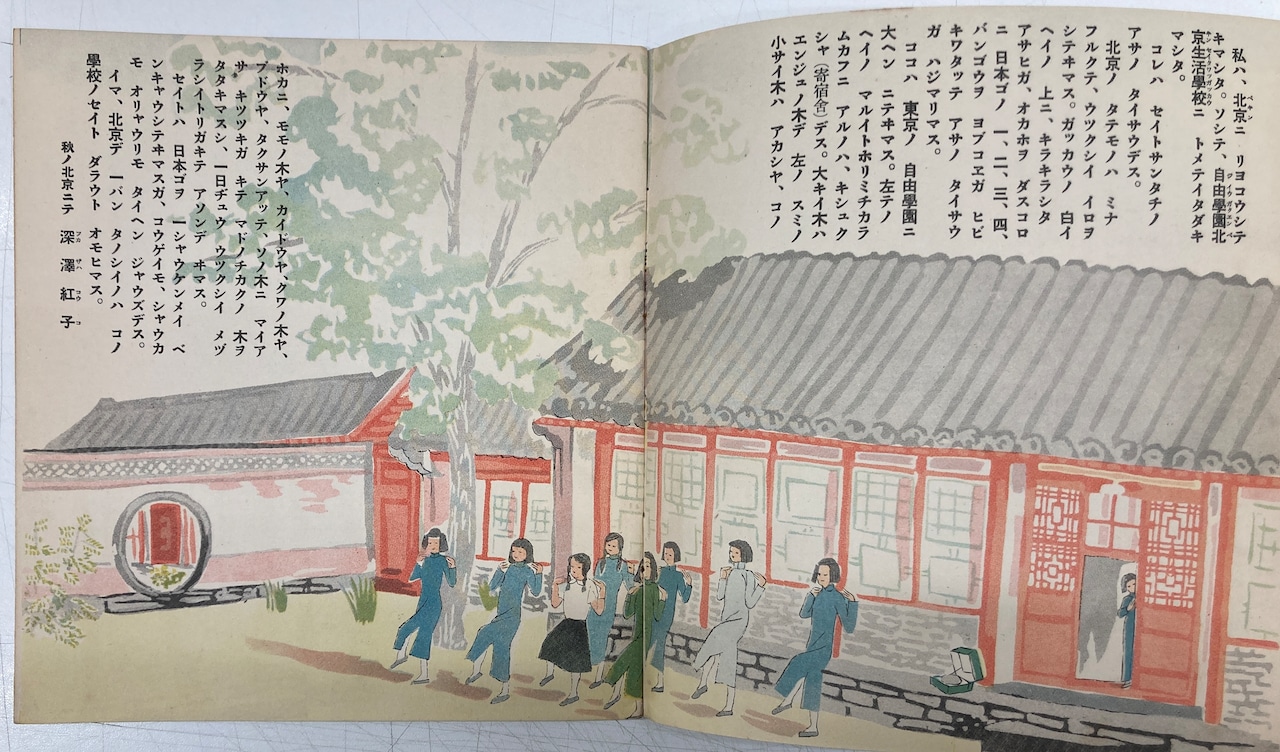 私ハ、北京ニ リヨコウシテ
キマシタ。ソシテ、自由學園北
京生活學校ニ トメテイタダキ
マシタ。
コレハ セイトサンタチノ
アサノ タイサウデス。
北京ノ タテモノハ ミナ
フルクテ、ウツクシイ イロヲ
シテヰマス。ガッカウノ 白イ
ヘイノ 上ニ、キラキラシタ
アサヒガ、オカホヲ ダスコロ
ニ 日本ゴノ 一、二、三、四、
バンゴウヲ ヨブコヱガ ヒビ
キワタッテ アサノ タイサウ
ガ ハジマリマス。
ココハ 東京ノ 自由學園ニ
大ヘン ニテヰマス。左テノ
ヘイノ マルイトホリミチカラ
ムカフニ アルノハ、キシュク
シャ(寄宿舍)デス。大キイ木ハ
エンジュノ木デ 左ノ スミノ
小サイ木ハ アカシヤ、コノ
ホカニ、モモノ木ヤ、カイドウヤ、クワノ木ヤ、
ブドウヤ、タクサンアッテ、ソノ木ニ マイア
サ キツツキガ キテ マドノチカクノ 木ヲ
タタキマスシ、一日ヂュウ ウツクシイ メヅ
ラシイトリガキテ アソンデ ヰマス。
セイトハ 日本ゴヲ 一シャウケンメイ ベ
ンキャウシテヰマスガ、コウゲイモ、シャウカ
モ オリャウリモ タイヘン ジャウズデス。
イマ、北京デ 一バン タノシイノハ コノ
學校ノセイト ダラウト オモヒマス。
秋ノ北京ニテ 深澤紅子